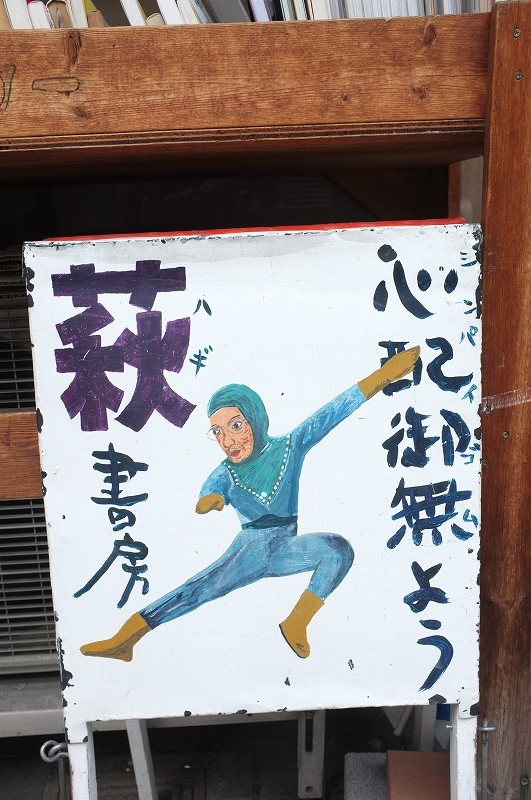 心配御無よう
シンパイゴム
萩
ハギ
書房